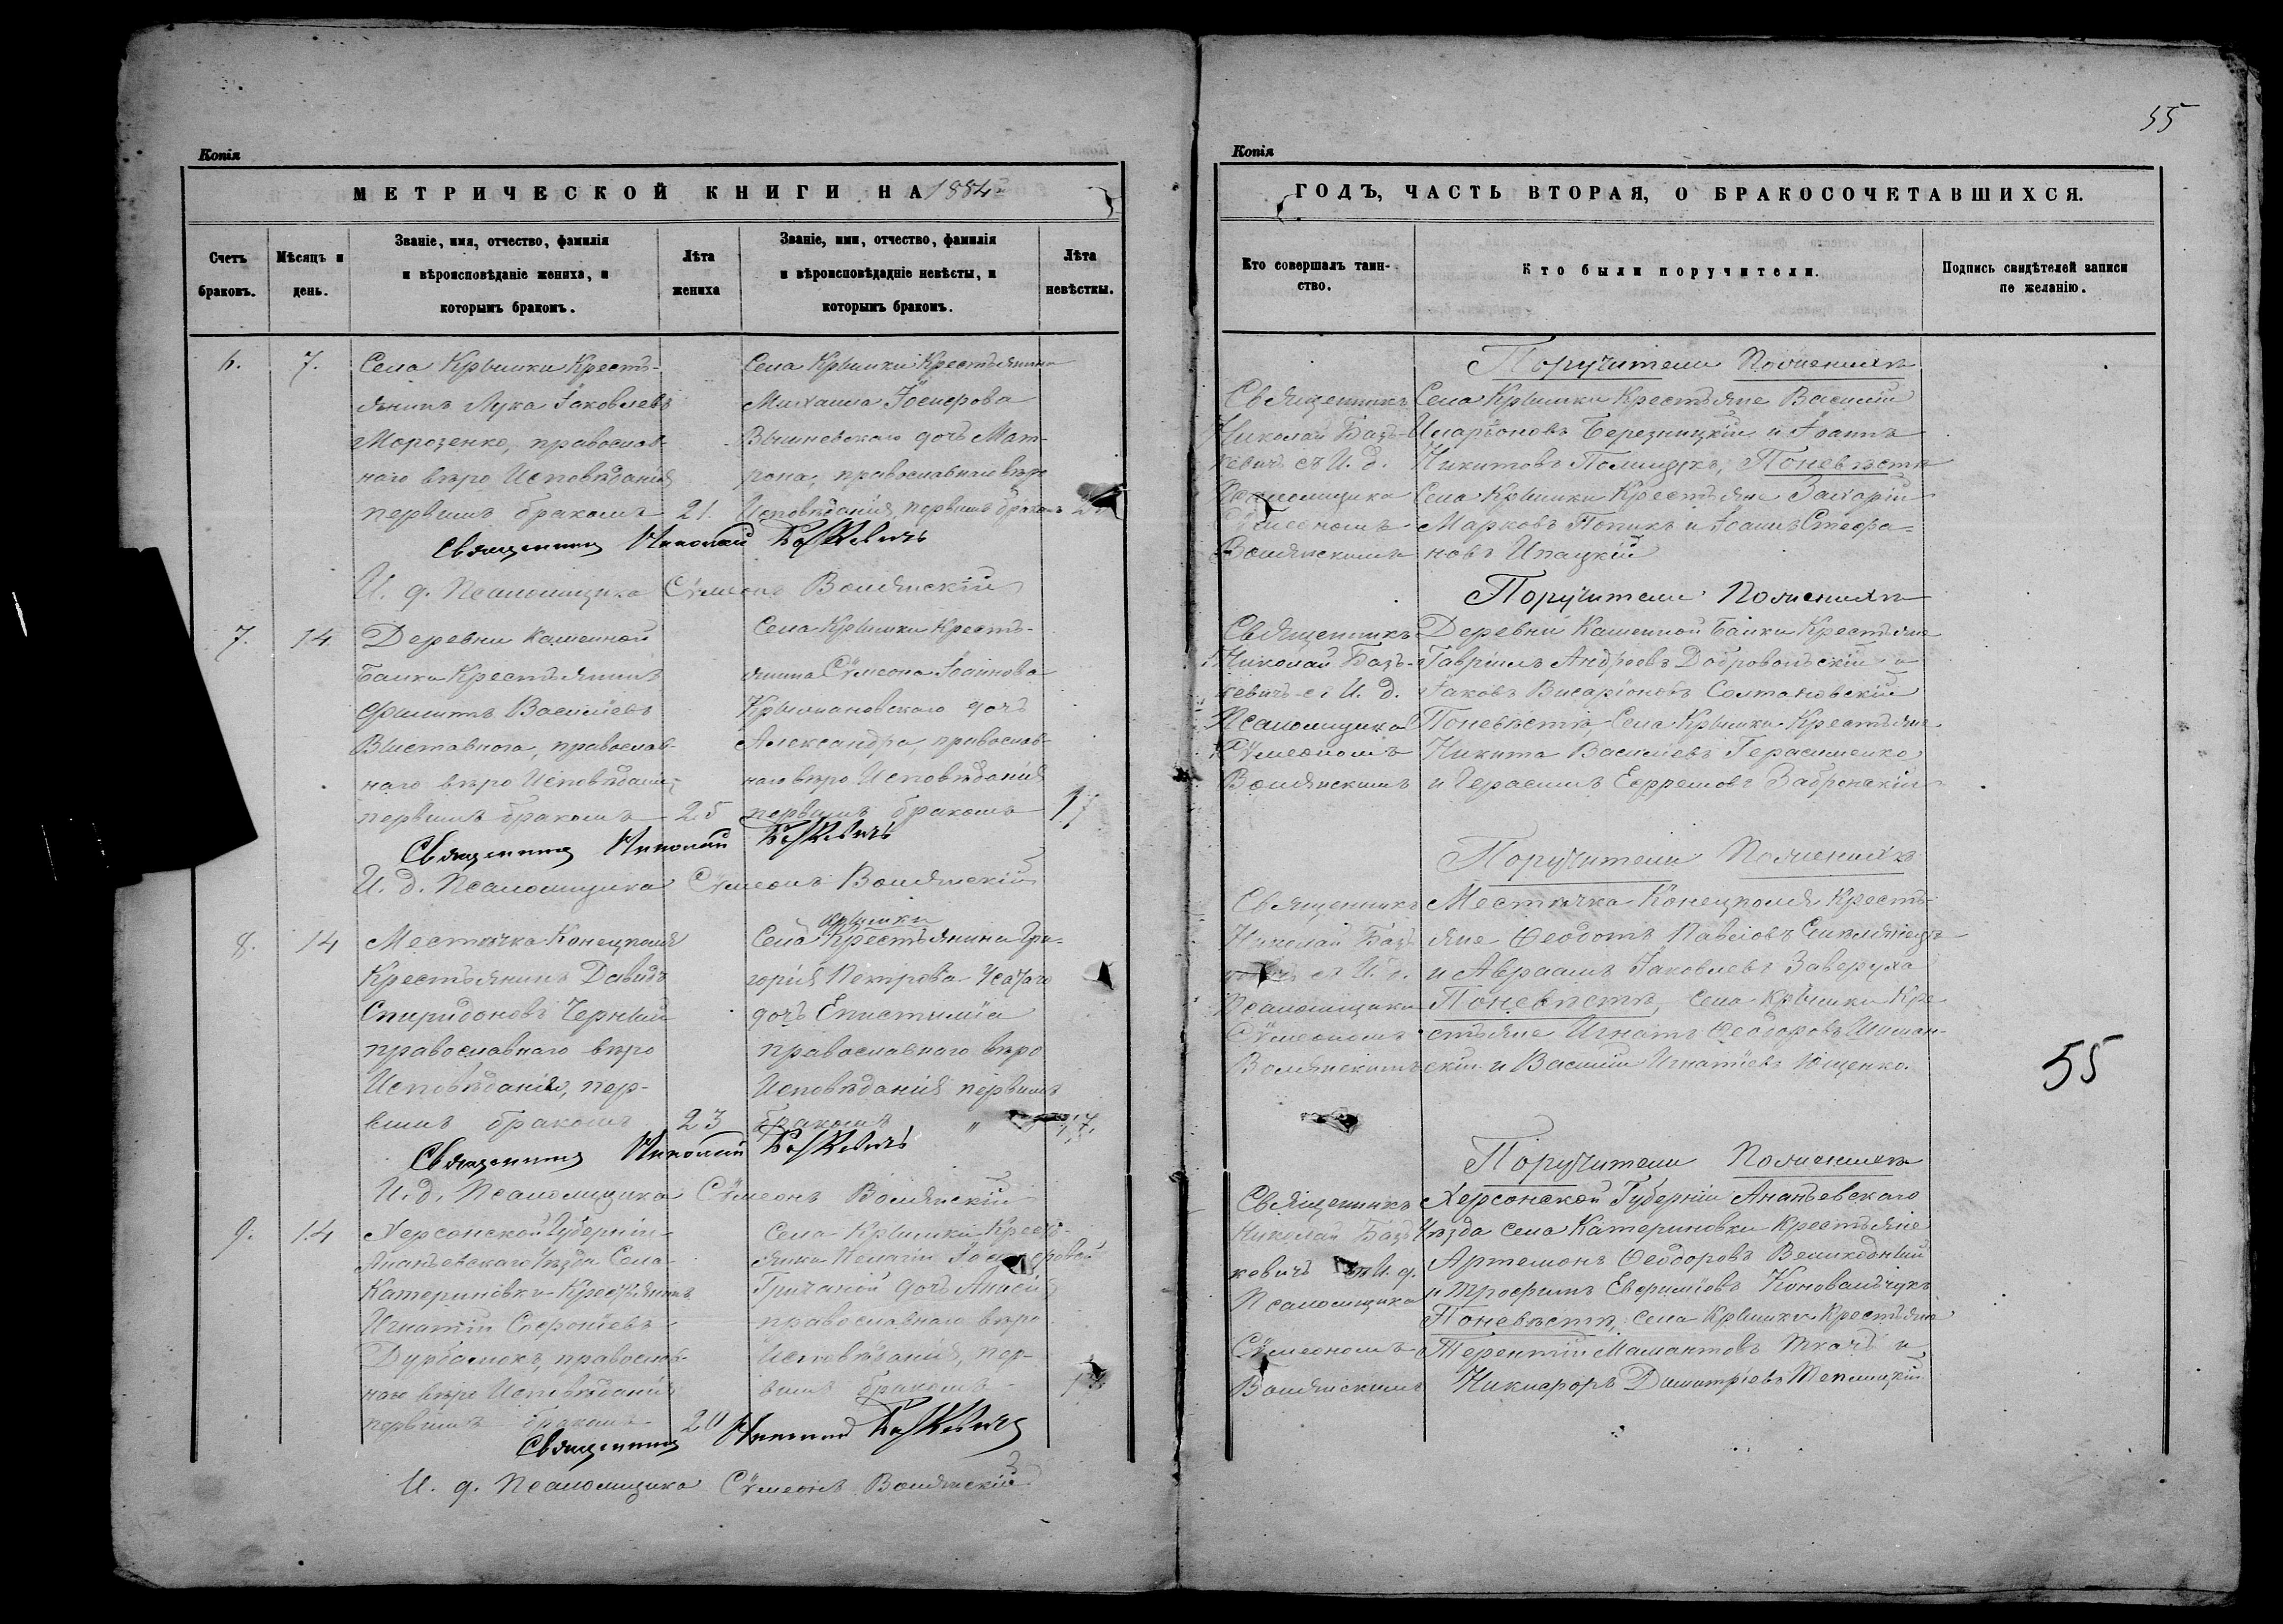 55
Копія
МЕТРИЧЕСКОЙ КНИГИ НА 1884
Счетъ браковъ.
Мѣсяцъ и день.
Званіе, имя, отчество, фамилія
и вѣроисповѣданіе жениха, и
которымъ бракомъ.
Лѣта жениха
Званіе, имя, отчество, фамилія
и вѣроисповѣдадніе невѣсты, и
которымъ бракомъ.
Лѣта невѣсткы.
6.
7.
Села Крымки Кресть-
янинъ Лука Іаковлевъ
Морозенко, православ-
наго вѣро Исповѣданія
первымъ бракомъ
21.
Села Крымки Крестьянина
Михаила Іосифова
Вышневскаго дочь Мат-
рона, православнаго вѣро
Исповѣданія, первымъ бракомъ
Священникъ Николай Базкевичъ
И. д. Псаломщика Сѵмеонъ Волянскій
7.
14
Деревни Каменной
Балки Крестьянинъ
Филиппъ Василіевъ
православ-
наго вѣро Исповѣданія
первымъ бракомъ
25
Села Крымки Кресть-
янина Сѵмеона Іоаннова
Крыжановскаго дочь
Александра, православ-
наго вѣро Исповѣданія
первымъ бракомъ
17
Священникъ Николай Базкевичъ
И. д. Псаломщика Сѵмеонъ Волянскій
8.
14
Мѣстечка Конецполя
Крестьянинъ Давидъ
Спиридоновъ Черный
православнаго вѣро
Исповѣданія, пер-
вымъ бракомъ
23
Крымки
Села Крестьянина Гри-
горія Петрова Усатаго
дочь Епистимія
православнаго вѣро
Исповѣданія первымъ
бракомъ "
17.
Священникъ Николай Базкевичъ
И. д. Псаломщика Сѵмеонъ Волянскій
9.
14
Херсонской Губерніи
Ананьевскаго Уѣзда Села
Катериновки Крестьянинъ
Игнатій Софроніевъ
православ-
наго вѣро Исповѣданія
первымъ бракомъ
20
Села Крымки Кресть-
янки Пелагіи
дочь
православнаго вѣро
Исповѣданія, пер-
вымъ бракомъ
Священникъ Николай Базкевичъ
И. д. Псаломщика Сѵмеонъ Волянскій
Копія
ГОДЪ, ЧАСТЬ ВТОРАЯ, О БРАКОСОЧЕТАВШИХСЯ.
Кто совершалъ таин-
ство.
Кто были поручители.
Подпись свидѣтелей записи
по желанію.
Священникъ
Николай Базъ-
кевичъ съ И. д.
Псаломщика
Сѵмеономъ
Волянскимъ
Поручители По женихѣ
Села Крымки Крестьяне Василій
Иларіоновъ Березницкій и Іоаннъ
Никитовъ Полищукъ, По невѣстѣ
Села Крымки Крестьяне Захарій
Марковъ Попикъ и Іоаннъ Стефа-
новъ Ипацкій
Священникъ
Николай Базъ-
кевичъ съ И. д.
Псаломщика
Сѵмеономъ
Волянскимъ
Поручители По женихѣ
Деревни Каменной Балки Крестьяне
Гавріилъ Андреевъ Добровольскій и
Іаковъ Висаріоновъ Солтановскій
По невѣстѣ, Села Крымки Крестьяне
Никита Василіевъ Герасименко
и Герасимъ Ефремовъ
Священникъ
Николай Базъ
кевичъ съ И. д.
Псаломщика
Сѵмеономъ
Волянскимъ
Поручители По женихѣ
Мѣстечка Конецполя Кресть-
яне Ѳеодотъ Павловъ
и Авраамъ Іаковлевъ Заверуха
По невѣстѣ, Села Крымки Кре-
стьяне Игнатъ Ѳеодоровъ Шиман-
скій и Василій Игнатіевъ Ющенко.
55
Священникъ
Николай Базъ
кевичъ съ И. д.
Псаломщика
Сѵмеономъ
Волянскимъ
Поручители По женихѣ
Херсонской Губерніи Ананьевскаго
Уѣзда села Катериновки Крестьяне
Артемонъ Ѳеодоровъ Великодный
и Трофимъ Евфиміовъ Коновальчукъ
По невѣстѣ, Села Крымки Крестьяне
Терентій Мамантовъ Ткачъ и
Никифоръ Димитріевъ